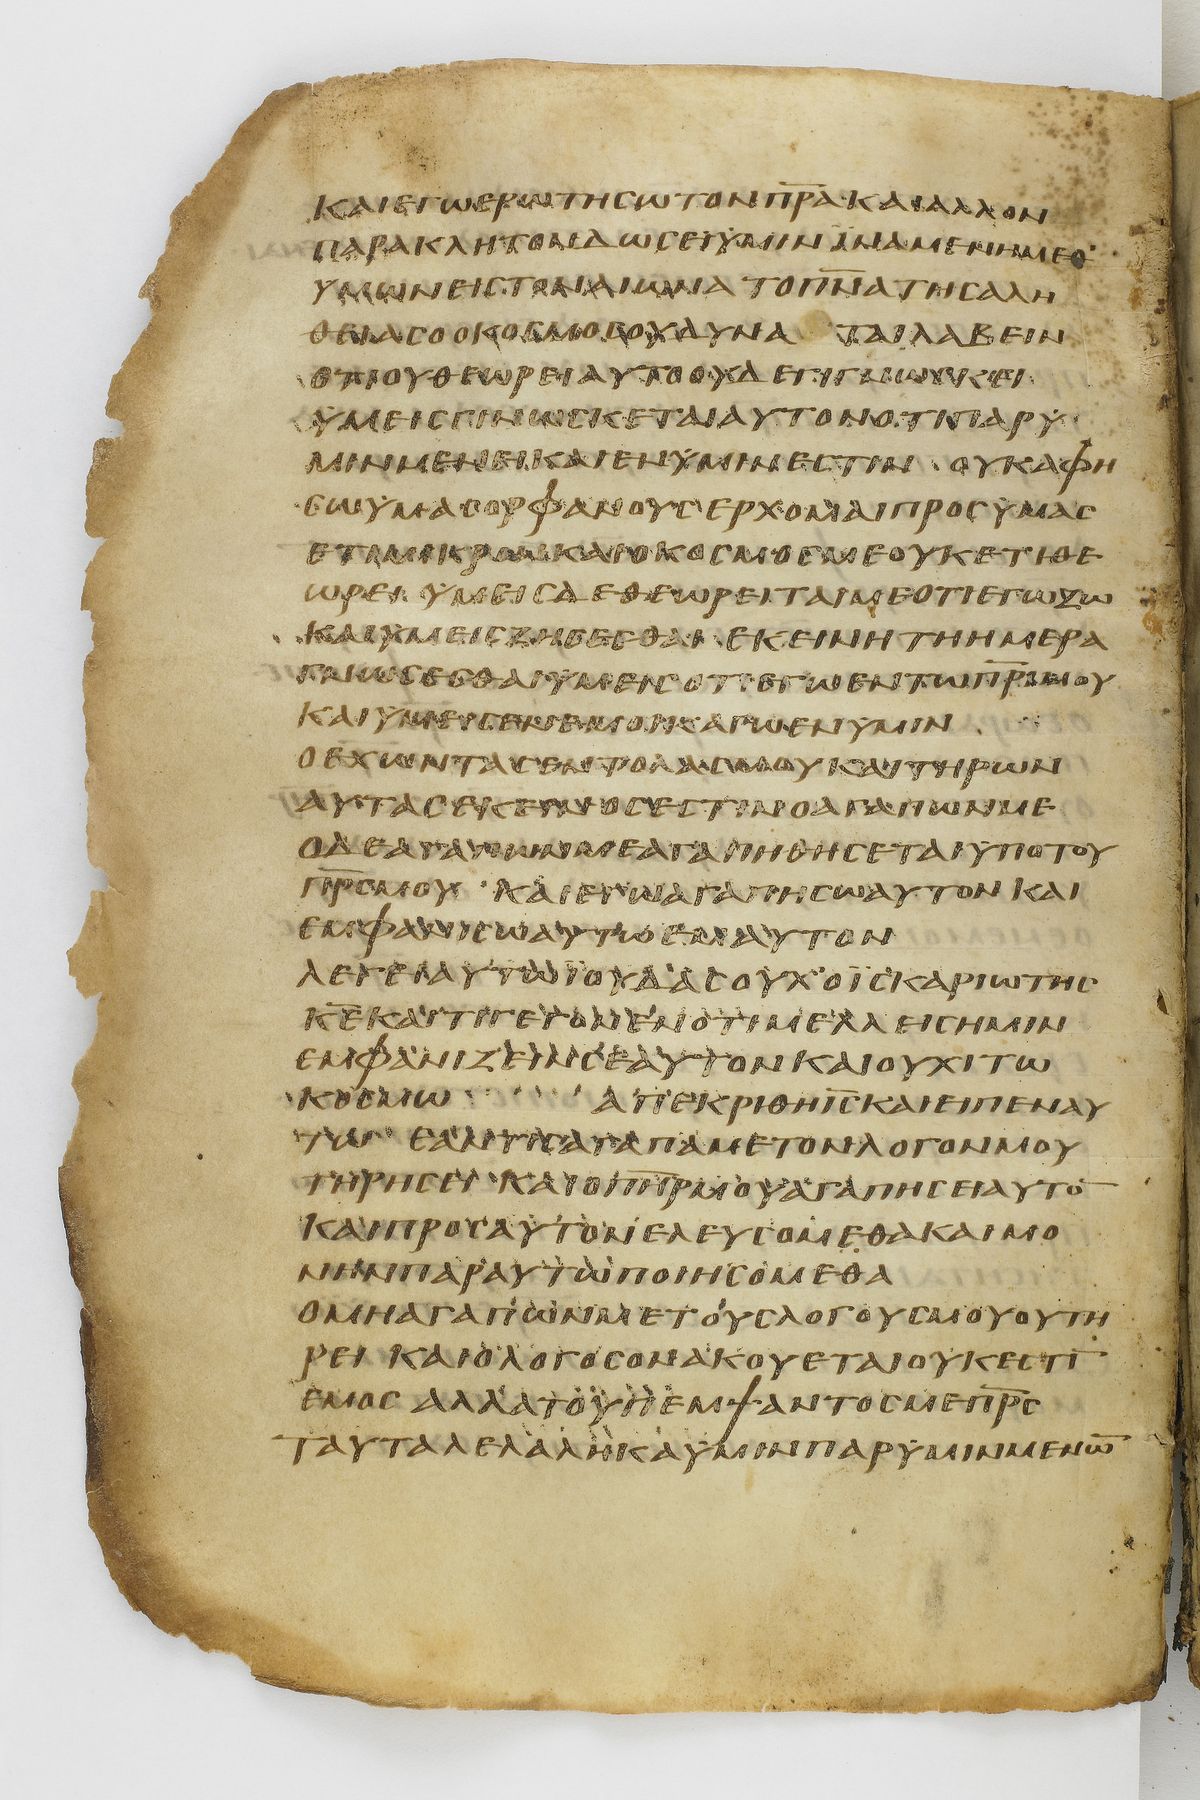 ΚΑΙΕΓΩΕΡΩΤΗΣΩΤΟΝΠ̅Ρ̅Α̅·ΚΑΙΑΛΛΟΝ
ΠΑΡΑΚΛΗΤΟΝΔΩΣΕΙΫΜΙΝΪΝΑΜΕΝΗΜΕΘ
ΥΜΩΝΕΙΣΤΟΝΑΙΩΝΑΤΟΠ̅Ν̅Α̅ΤΗΣΑΛΗ
ΘΕΙΑΣΟΟΚΟΣΜΟΣΟΥΔΥΝΑ ΤΑΙΛΑΒΕΙΝ
ΟΤΙΟΥΘΕΩΡΕΙΑΥΤΟΟΥΔΕΓΙΓΝΩΣΚΕΙ
ΫΜΕΙΣΓΙΝΩΣΚΕΤΑΙΑΥΤΟΝΟΤΙΠΑΡΫ
ΜΙΝΜΕΝΕΙΚΑΙΕΝΫΜΙΝΕΣΤΙΝ ΟΥΚΑΦΗ
ΣΩΥΜΑΣΟΡΦΑΝΟΥΣΕΡΧΟΜΑΙΠΡΟΣΫΜΑΣ
ΕΤΙΜΙΚΡΟΝΚΑΙΟΚΟΣΜΟΣΜΕΟΥΚΕΤΙΘΕ
ΩΡΕΙ ΫΜΕΙΣΔΕΘΕΩΡΕΙΤΑΙΜΕΟΤΙΕΓΩΖΩ
ΚΑΙΫΜΕΙΣΖΗΣΕΣΘΑΙ ΕΚΕΙΝΗΤΗΗΜΕΡΑ
ΓΝΩΣΕΣΘΑΙΫΜΕΙΣΟΤΙΕΓΩΕΝΤΩΠ̅Ρ̅Ι̅ΜΟΥ
ΚΑΙΥΜΕΙΣΕΝΕΜΟΙΚΑΓΩΕΝΥΜΙΝ
ΟΕΧΩΝΤΑΣΕΝΤΟΛΑΣΜΟΥΚΑΙΤΗΡΩΝ
ΑΥΤΑΣΕΚΕΙΝΟΣΕΣΤΙΝΟΑΓΑΠΩΝΜΕ
ΟΔΕΑΓΑΠΩΝΜΕΑΓΑΠΗΘΗΣΕΤΑΙΥΠΟΤΟΥ
Π̅Ρ̅Σ̅ΜΟΥ·ΚΑΙΕΓΩΑΓΑΠΗΣΩΑΥΤΟΝΚΑΙ
ΕΜΦΑΝΙΣΩΑΥΤΩΕΜΑΥΤΟΝ
ΛΕΓΕΙΑΥΤΩΙΟΥΔΑΣΟΥΧΟΪΣΚΑΡΙΩΤΗΣ
Κ̅Ε̅ΚΑΙΤΙΓΕΓΟΝΕΝΟΤΙΜΕΛΛΕΙΣΗΜΙΝ
ΕΜΦΑΝΙΖΕΙΝΣΕΑΥΤΟΝΚΑΙΟΥΧΙΤΩ
ΚΟΣΜΩ ΑΠΕΚΡΙΘΗΙ̅Σ̅ΚΑΙΕΙΠΕΝΑΥ
ΤΩ ΕΑΝΤΙΣΑΓΑΠΑΜΕΤΟΝΛΟΓΟΝΜΟΥ
ΤΗΡΗΣΕΙ ΚΑΙΟΠ̅Η̅Ρ̅ΜΟΥΑΓΑΠΗΣΕΙΑΥΤΟ̅
ΚΑΙΠΡΟΣΑΥΤΟΝΕΛΕΥΣΟΜΕΘΑΚΑΙΜΟ
ΝΗΝΠΑΡΑΥΤΩΠΟΙΗΣΟΜΕΘΑ
ΟΜΗΑΓΑΠΩΝΜΕΤΟΥΣΛΟΓΟΥΣΜΟΥΟΥΤΗ
ΡΕΙ ΚΑΙΟΛΟΓΟΣΟΝΑΚΟΥΕΤΑΙΟΥΚΕΣΤΙ̅
ΕΜΟΣ ΑΛΛΑΤΟΥΠΕΜΨΑΝΤΟΣΜΕΠ̅Ρ̅Σ̅
ΤΑΥΤΑΛΕΛΑΛΗΚΑΥΜΙΝΠΑΡΥΜΙΝΜΕΝΩ̅